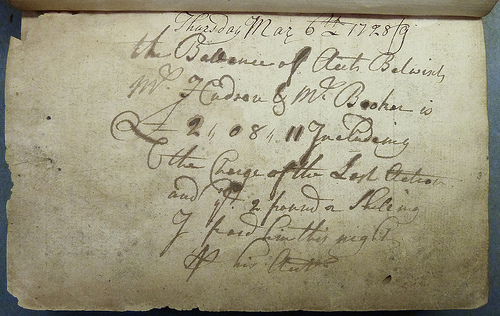 Thursday Mar 6th 1728/9
the Ballance of Acts Betwixt
Mr Hudson & Mr Booker is
£ 2,, 08,, 11 Including
the Charge of the Last Action
and yt 2 pound a Shilling
I paid him this night
his